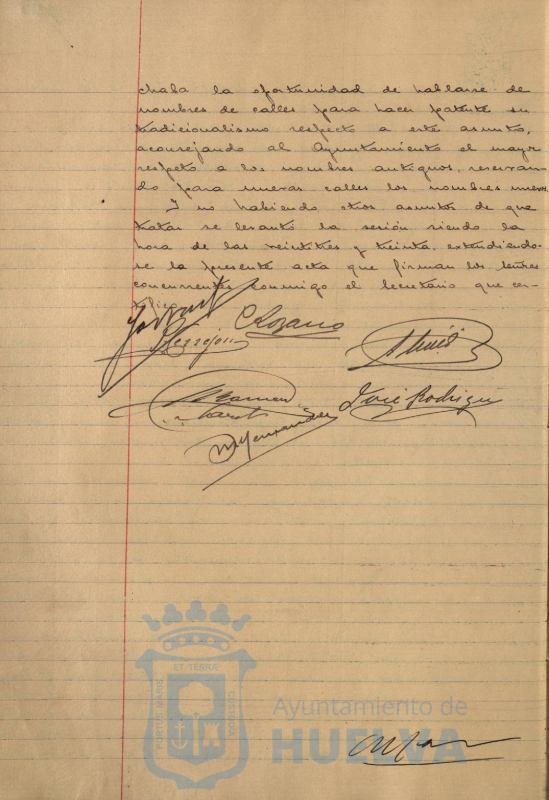 chaba la oportunidad de hablarse de
nombres de calles para hacer patente su
tradicionalismo respecto a este asunto,
aconsejando al Ayuntamiento el mayor
respeto a los nombres antiguos, reservan-
do para nuevas calles los nombres nuevos.
Y no habiendo otros asuntos de que
tratar se levantó la sesión siendo la
hora de las veintitres y treinta, extendiendo-
se la presente acta que firman los señores
concurrentes conmigo el Secretario que cer-
tifico.
C Lozano
José Rodrigu
PORTUS MARIS ET TERRAE CUSTODIA
Ayuntamiento de
HUELVA